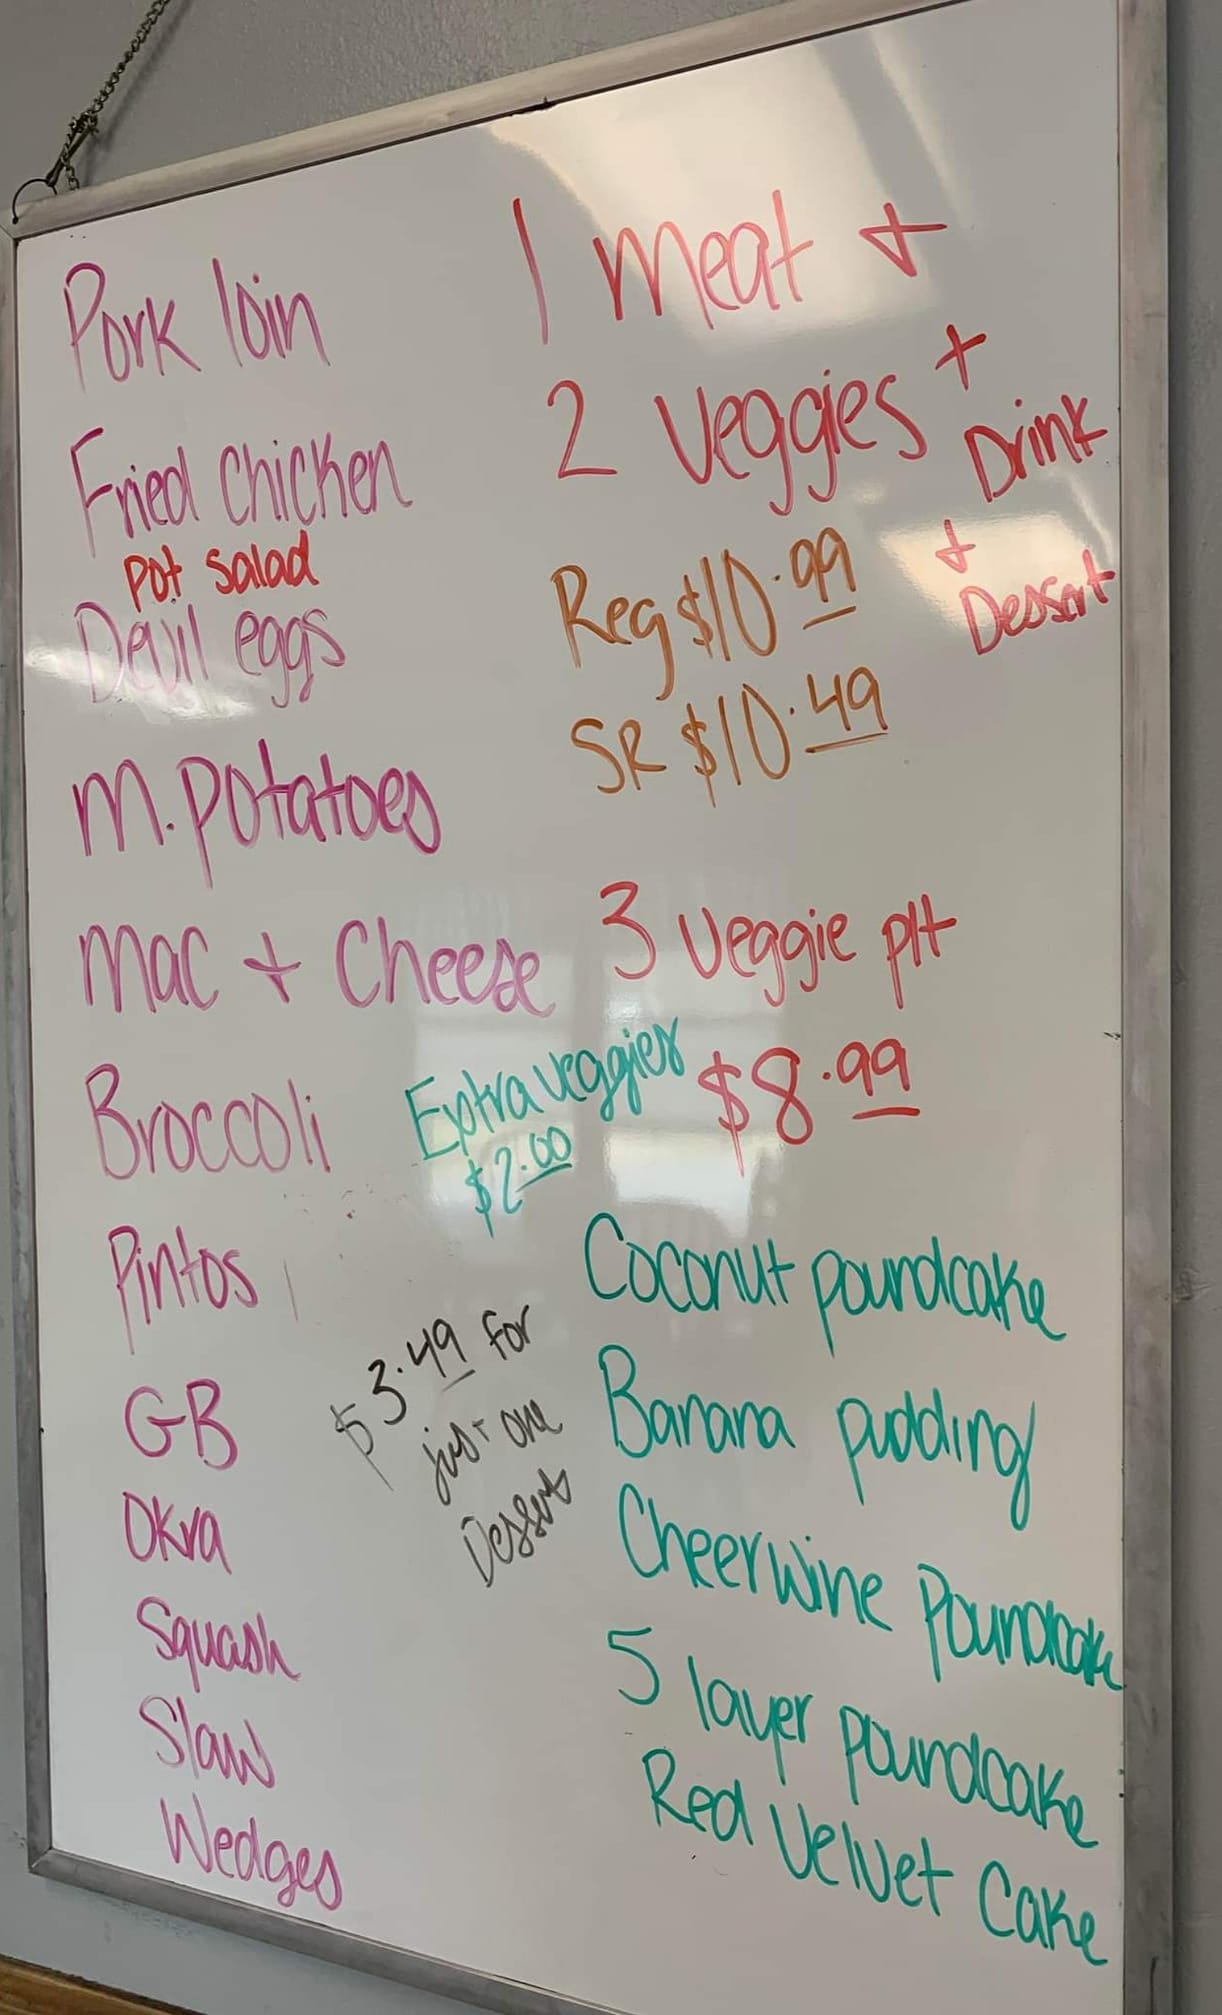 Pork loin
Fried chicken
pot salad
Devil eggs
M. potatoes
Mac + Cheese
Broccoli
Pintos
GB
Okra
Squash
Slaw
Wedges
1 meat +
2 veggies +
Drink
+
Dessert
Reg $10.99
SR $10.49
3 veggie plt
$8.99
Extra veggies
$2.00
$3.49 for
just one
Dessert
Coconut poundcake
Banana pudding
Cheerwine Poundcake
5 layer poundcake
Red Velvet Cake